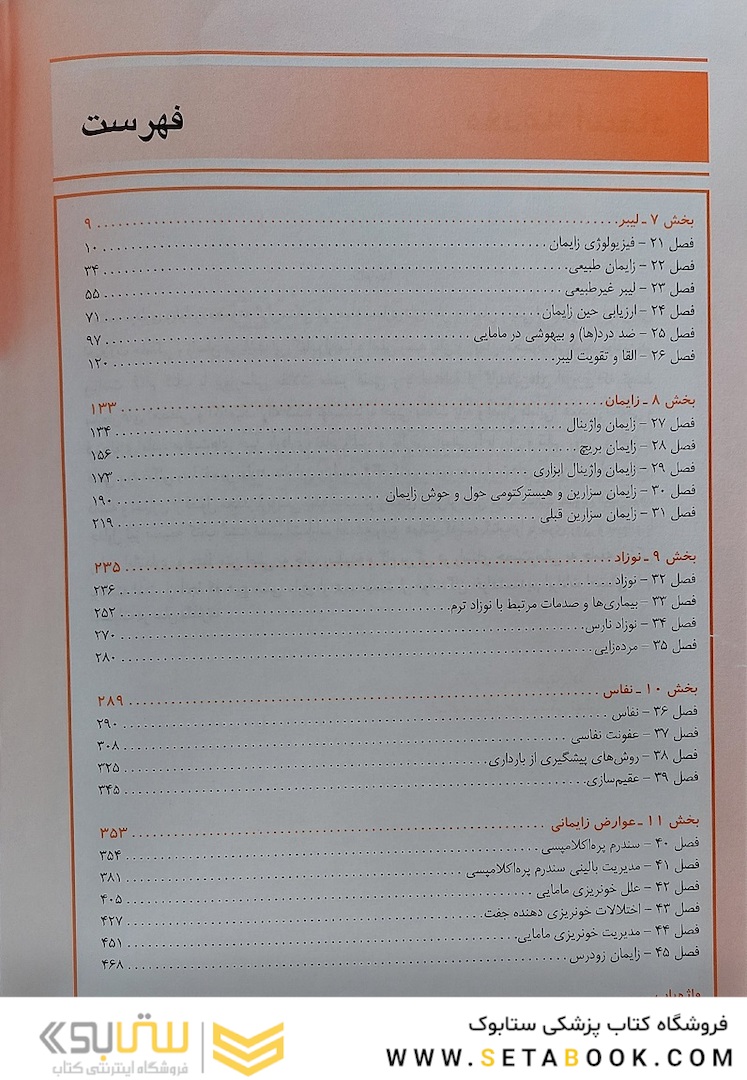 فهرست
بخش ۷ ـ لیبر ۹
فصل ۲۱ – فیزیولوژی زایمان ۱۰
فصل ۲۲ – زایمان طبیعی ۳۴
فصل ۲۳ – لیبر غیرطبیعی ۵۵
فصل ۲۴ – ارزیابی حین زایمان ۷۱
فصل ۲۵ – ضد درد(ها) و بیهوشی در مامایی ۹۷
فصل ۲۶ – القا و تقویت لیبر ۱۲۰
بخش ۸ ـ زایمان ۱۳۳
فصل ۲۷ – زایمان واژینال ۱۳۴
فصل ۲۸ – زایمان بریچ ۱۵۶
فصل ۲۹ – زایمان واژینال ابزاری ۱۷۳
فصل ۳۰ – زایمان سزارین و هیسترکتومی حول و حوش زایمان ۱۹۰
فصل ۳۱ – زایمان سزارین قبلی ۲۱۹
بخش ۹ ـ نوزاد ۲۳۵
فصل ۳۲ – نوزاد ۲۳۶
فصل ۳۳ – بیماری‌ها و صدمات مرتبط با نوزاد ترم ۲۵۲
فصل ۳۴ – نوزاد نارس ۲۷۰
فصل ۳۵ – مرده‌زایی ۲۸۰
بخش ۱۰ ـ نفاس ۲۸۹
فصل ۳۶ – نفاس ۲۹۰
فصل ۳۷ – عفونت نفاسی ۳۰۸
فصل ۳۸ – روش‌های پیشگیری از بارداری ۳۲۵
فصل ۳۹ – عقیم‌سازی ۳۴۵
بخش ۱۱ ـ عوارض زایمانی ۳۵۳
فصل ۴۰ – سندرم پره‌اکلامپسی ۳۵۴
فصل ۴۱ – مدیریت بالینی سندرم پره‌اکلامپسی ۳۸۱
فصل ۴۲ – علل خونریزی مامایی ۴۰۵
فصل ۴۳ – اختلالات خونریزی دهنده جفت ۴۲۷
فصل ۴۴ – مدیریت خونریزی مامایی ۴۵۱
فصل ۴۵ – زایمان زودرس ۴۶۸
فروشگاه کتاب پزشکی ستابوک
WWW.SETABOOK.COM
ستابوک
فروشگاه اینترنتی کتاب